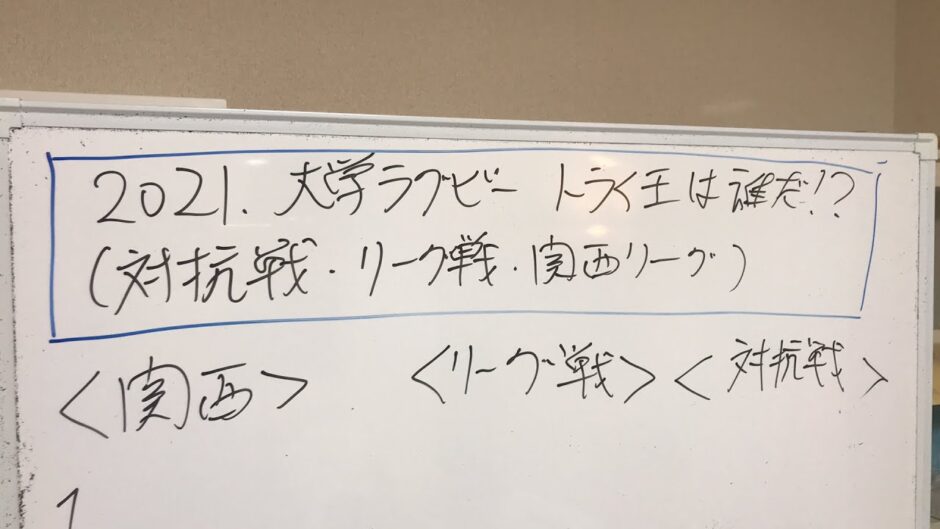 2021. 大学ラグビー トライ王は誰だ!?
(対抗戦・リーグ戦・関西リーグ)
<関西> <リーグ戦> <対抗戦>
1